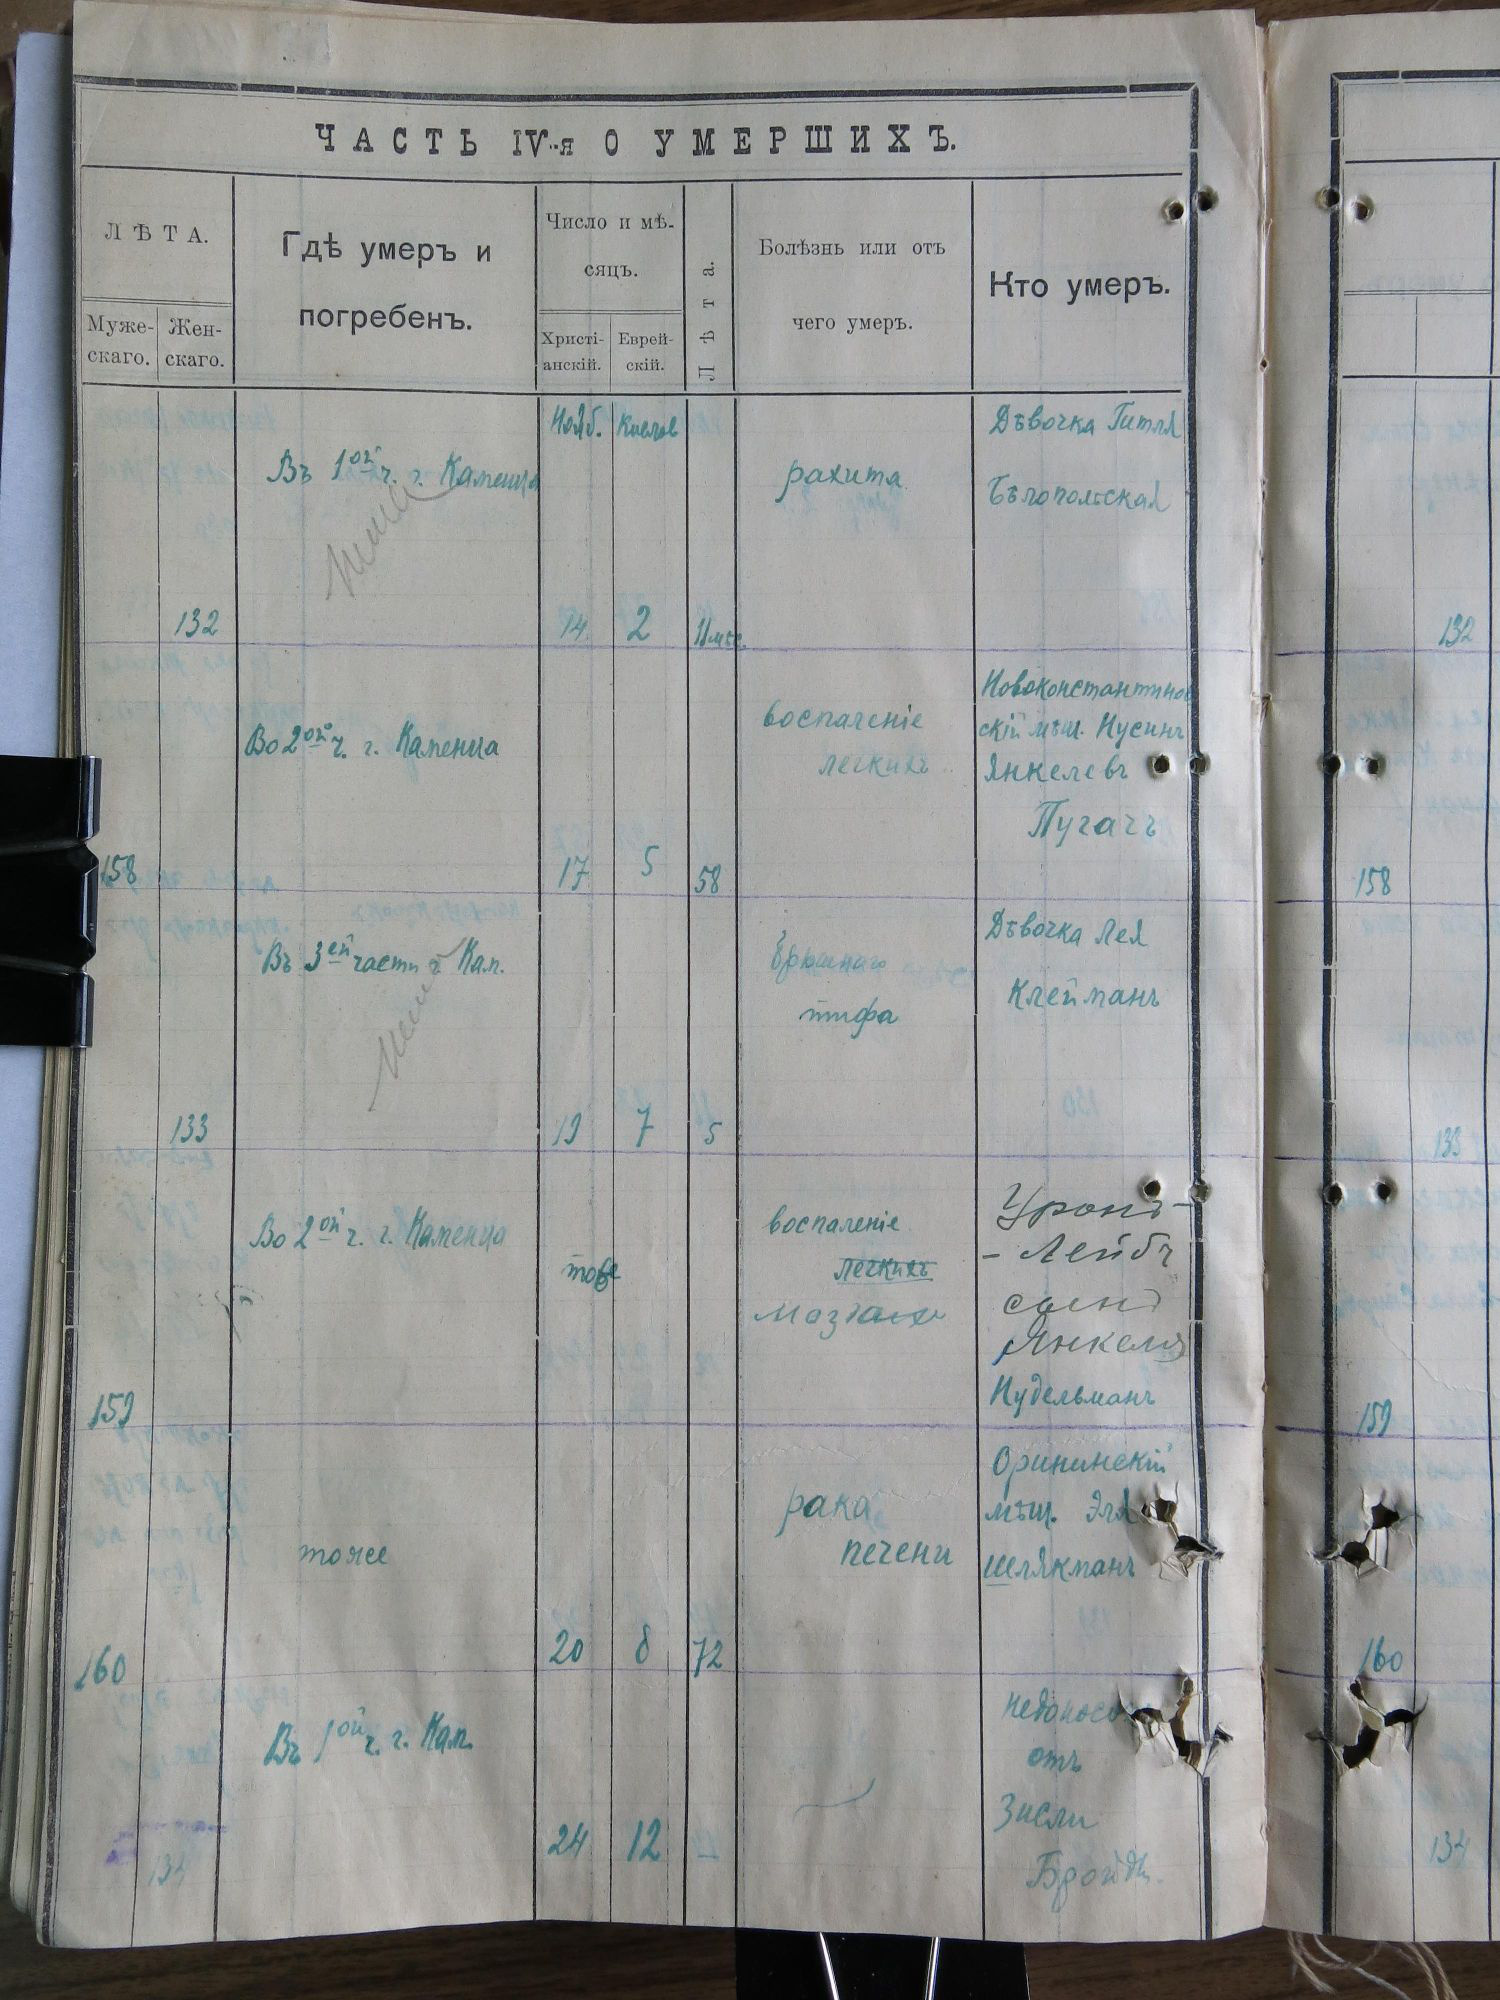 ЧАСТЬ IV-я О УМЕРШИХЪ.
ЛѢТА.
Муже-
скаго.
Жен-
скаго.
Гдѣ умеръ и
погребенъ.
Число и мѣ-
сяцъ.
Христі-
анскій.
Еврей-
скій.
Лѣта.
Болѣзнь или отъ
чего умеръ.
Кто умеръ.
Нояб. Кислев
Дѣвочка Гитля
Въ 1ой ч. г. Каменца
рахита
Бѣлопольская
132 14 2 11 мѣс.
132
Новоконстантинов
скій мѣщ. Нусинъ
Во 2ой ч. г. Каменца
воспаленіе
легкихъ
Янкелевъ
Пугачъ
158 17 5 58
158
Дѣвочка Лея
Въ 3ей части г. Кам.
брюшного
тифа
Клейманъ
133 19 7 5
133
Во 2ой ч. г. Каменца
тоже
воспаленіе
легкихъ
-Лейбъ
сынъ
Янкеля
Нудельманъ
159
159
Орининскій
мѣщ. Эля
Шеляkманъ
тоже
рака
печени
160 20 8 72
160
Въ 1ой ч. г. Кам.
Недоносо
отъ
Зисли
134 24 12 —
134